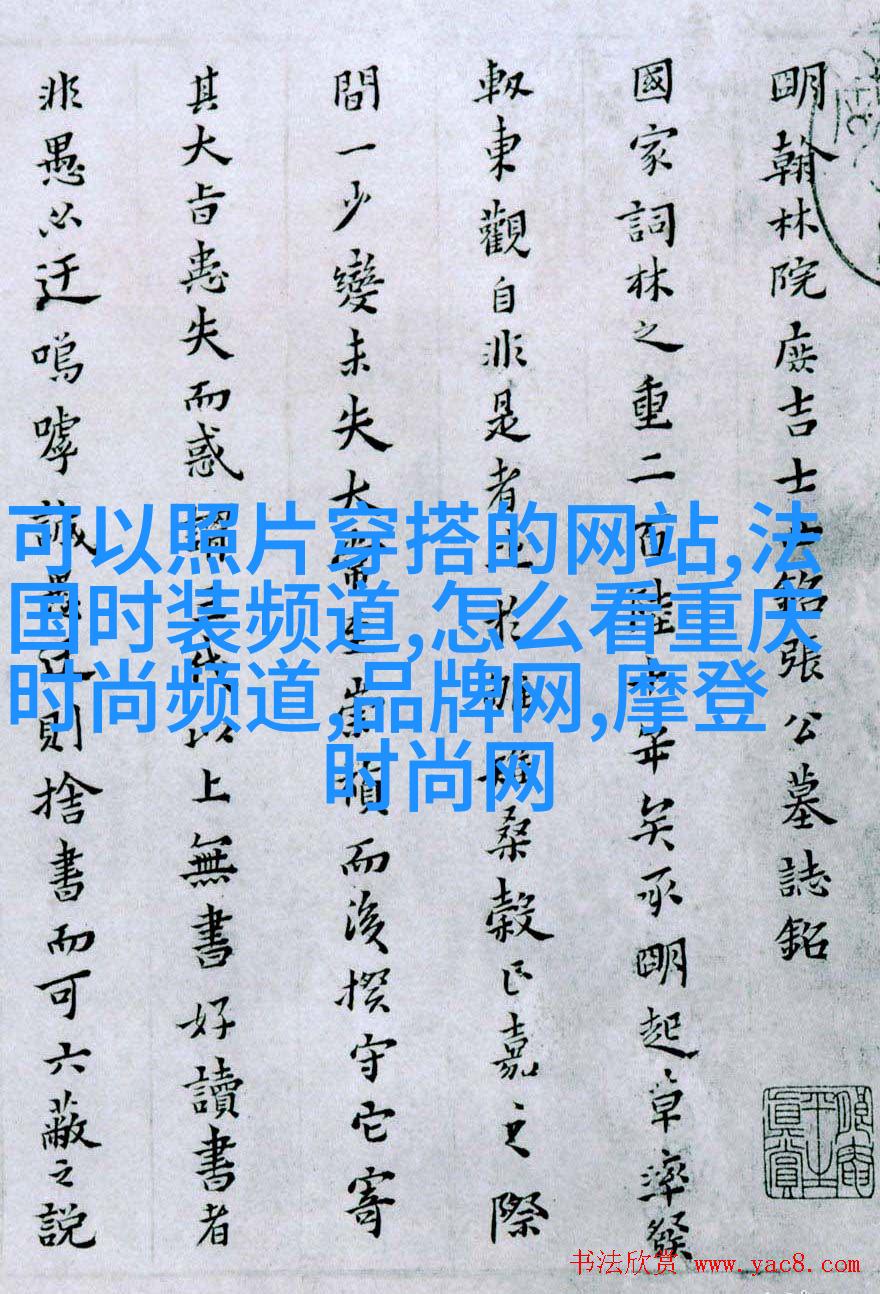 明翰林院庶吉士銘張公墓誌銘
國家詞林之重二百年矣承明起草
東觀自非是者於桑穀之際
間一少變未失大崇楨而後揆守它寄
其大旨患失而惑以上無書好讀書者
非愚必迂嗚嘑誠則捨書而可六蔽之説
可以照片穿搭的网站,法
国时装频道,怎么看重庆
时尚频道,品牌网,摩登
时尚网
书法欣赏 www.yac8.com